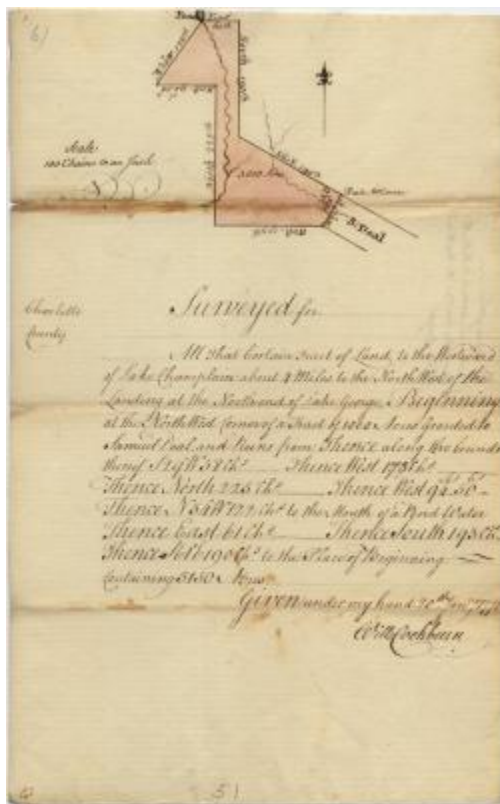 Scale
100 Chains to an Inch
S. Deal
Charlotte
County
Surveyed for
All that Certain Tract of Land, to the Westward
of Lake Champlain about 4 Miles to the North West of the
Landing at the North end of Lake George, Beginning
at the North West Corner of a Tract of 1000 Acres Granted to
Samuel Deal and Runs from Thence along the bounds
thereof S 29 W 58 Chs Thence West 178 Chs
Thence North 225 Chs Thence West 94 50
Thence N 34 W 122 Chs to the Mouth of a Pond Water
Thence East 61 Chs Thence South 193 Chs
Thence 190 Chs to the Place of Beginning
Containing 5150 Acres
Given under my hand 20th
Will Cockburn
51